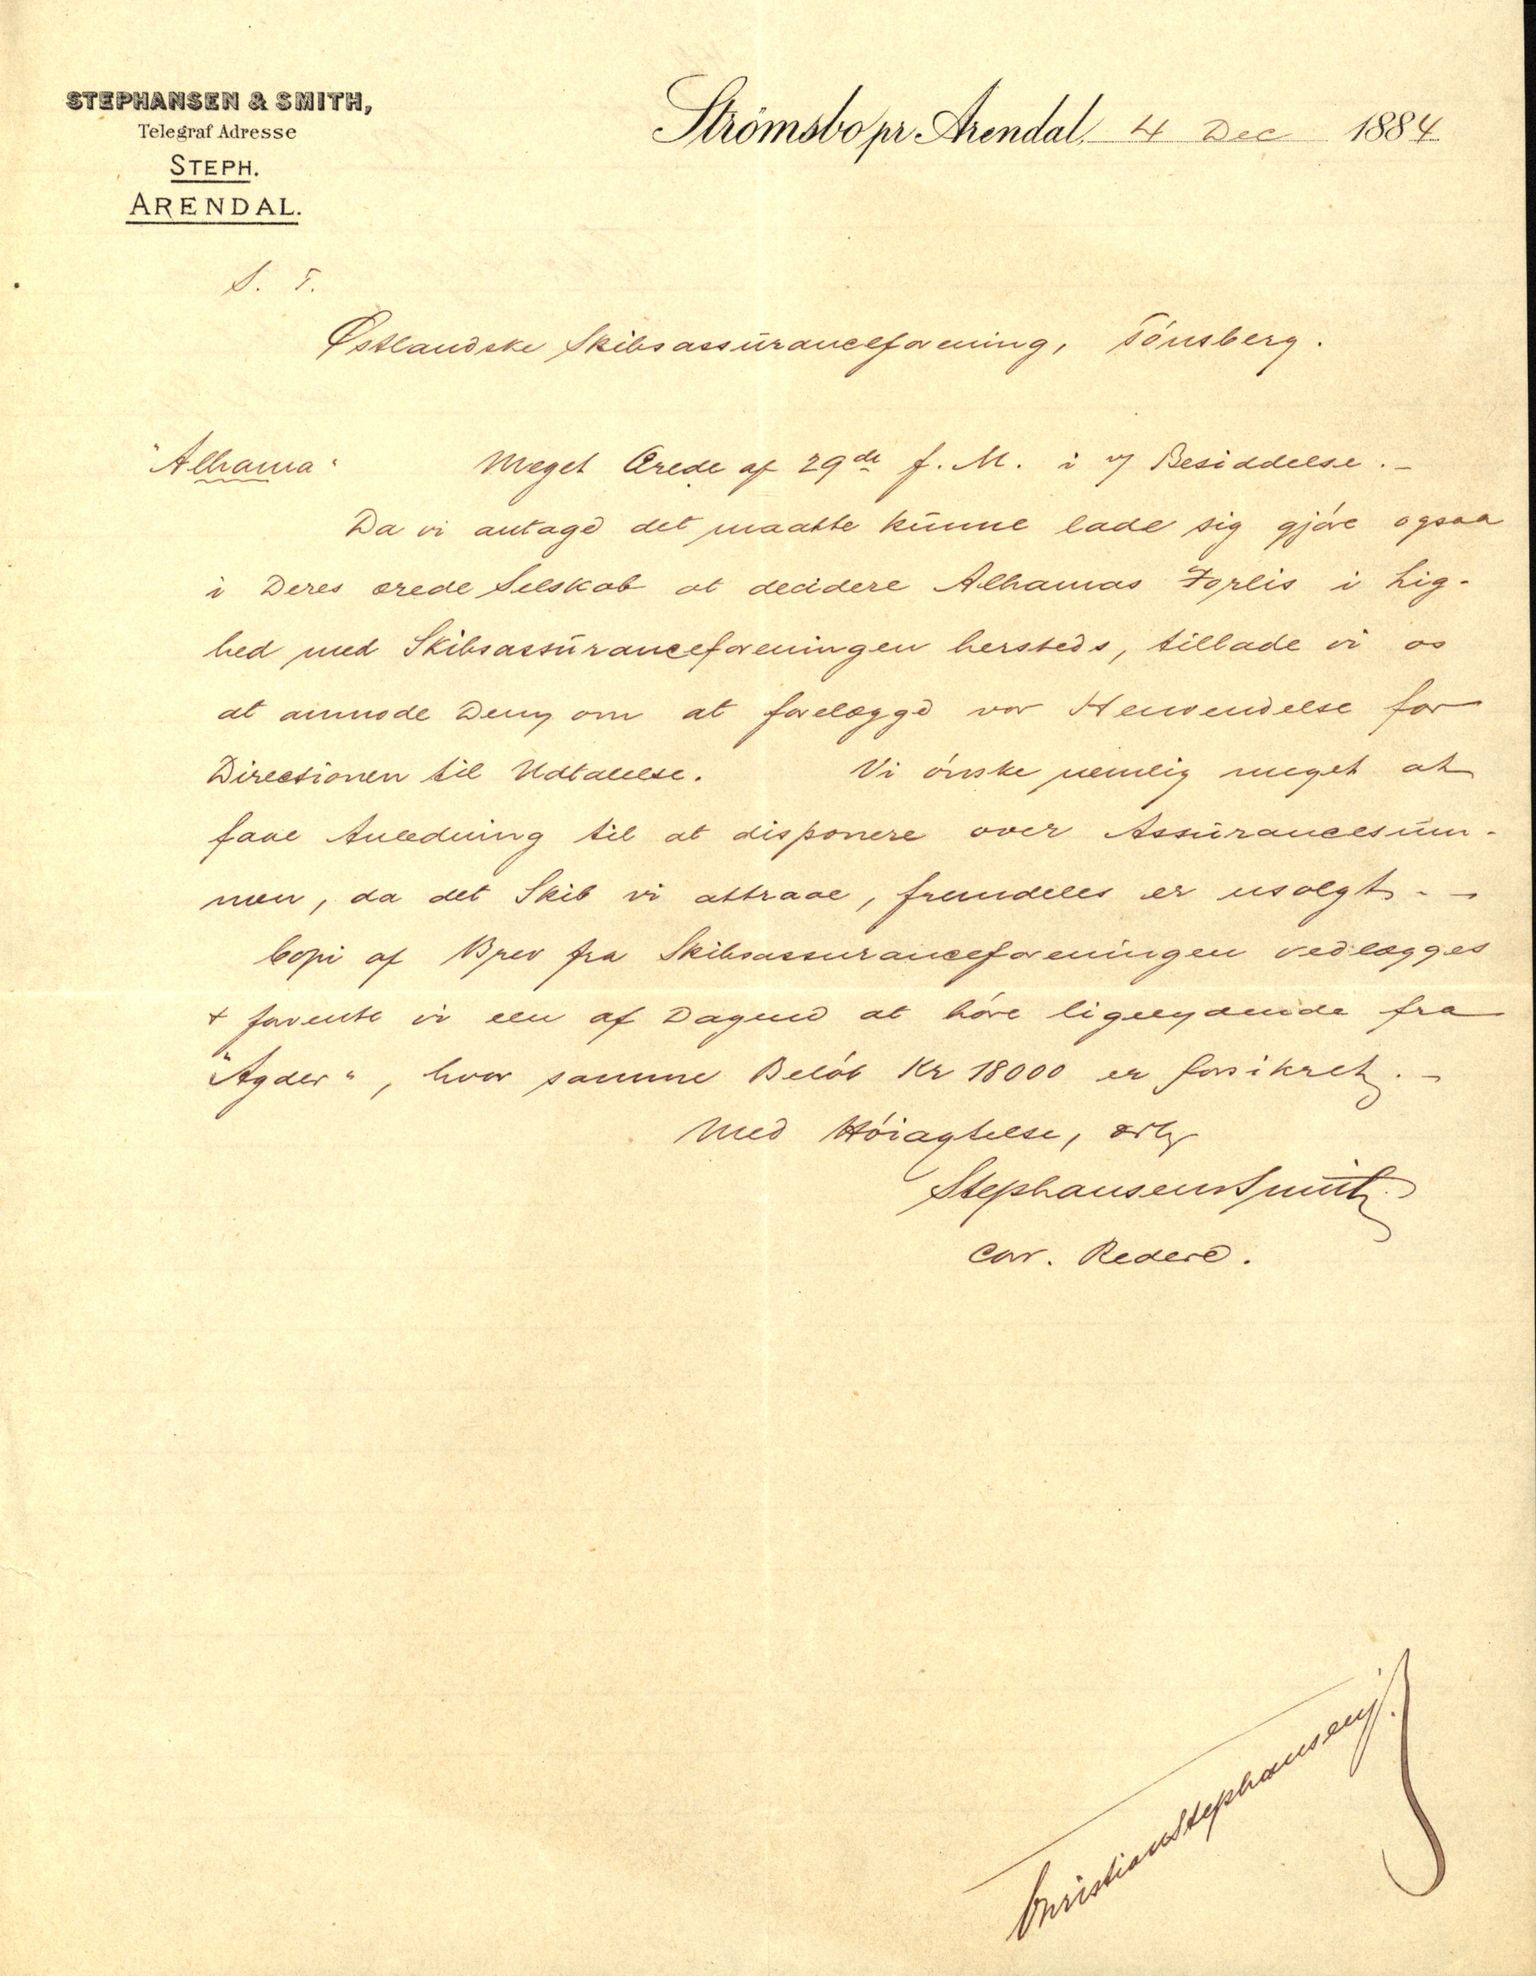 STEPHANSEN & SMITH,
Telegraf Adresse
STEPH.
ARENDAL.
Strömsbo pr. Arendal, 4 Dec 1884
S. T.
Østlandske Skibsassūranceforening, Tónsberg.
"Alhama" Meget Ærede af 29de f. M. i Besiddelse. –
Da vi antage det maatte kūnne lade sig gjóre ogsaa
i Deres ærede Selskab at decidere Alhamas Forlis i Lig-
hed med Skibsassūranceforeningen hersteds, tillade vi os
at anmode Dem om at forelægge vor Henvendelse for
Directionen til Udtalelse. Vi ónske nemlig meget at
faae Anledning til at disponere over Assūrancesūm-
men, da det Skib vi attraae, fremdeles er usolgt. –
Copi af Brev fra Skibsassuranceforeningen vedlægges
+ forvente vi een af Dagene at hóre ligelydende fra
"Agder", hvor samme Belób Kr 18000 er forsikret. –
Med Hóiagtelse, erb
Stephansen & Smith
Corr. Redere.
Christian Stephansen j.